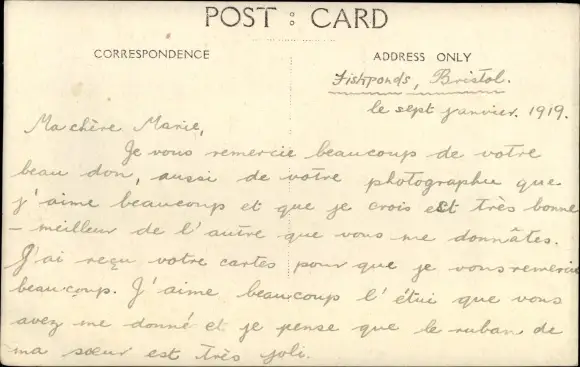 POST : CARD
CORRESPONDENCE
ADDRESS ONLY
Fishponds, Bristol.
le sept janvier. 1919.
Ma chère Marie,
Je vous remercie beaucoup de votre
beau don, aussi de votre photographie que
j'aime beaucoup et que je crois est très bonne
– meilleur de l'autre que vous me donnâtes.
J'ai reçu votre cartes pour que je vous remercie
beaucoup. J'aime beaucoup l'étui que vous
avez me donné et je pense que le ruban de
ma sœur est très joli.